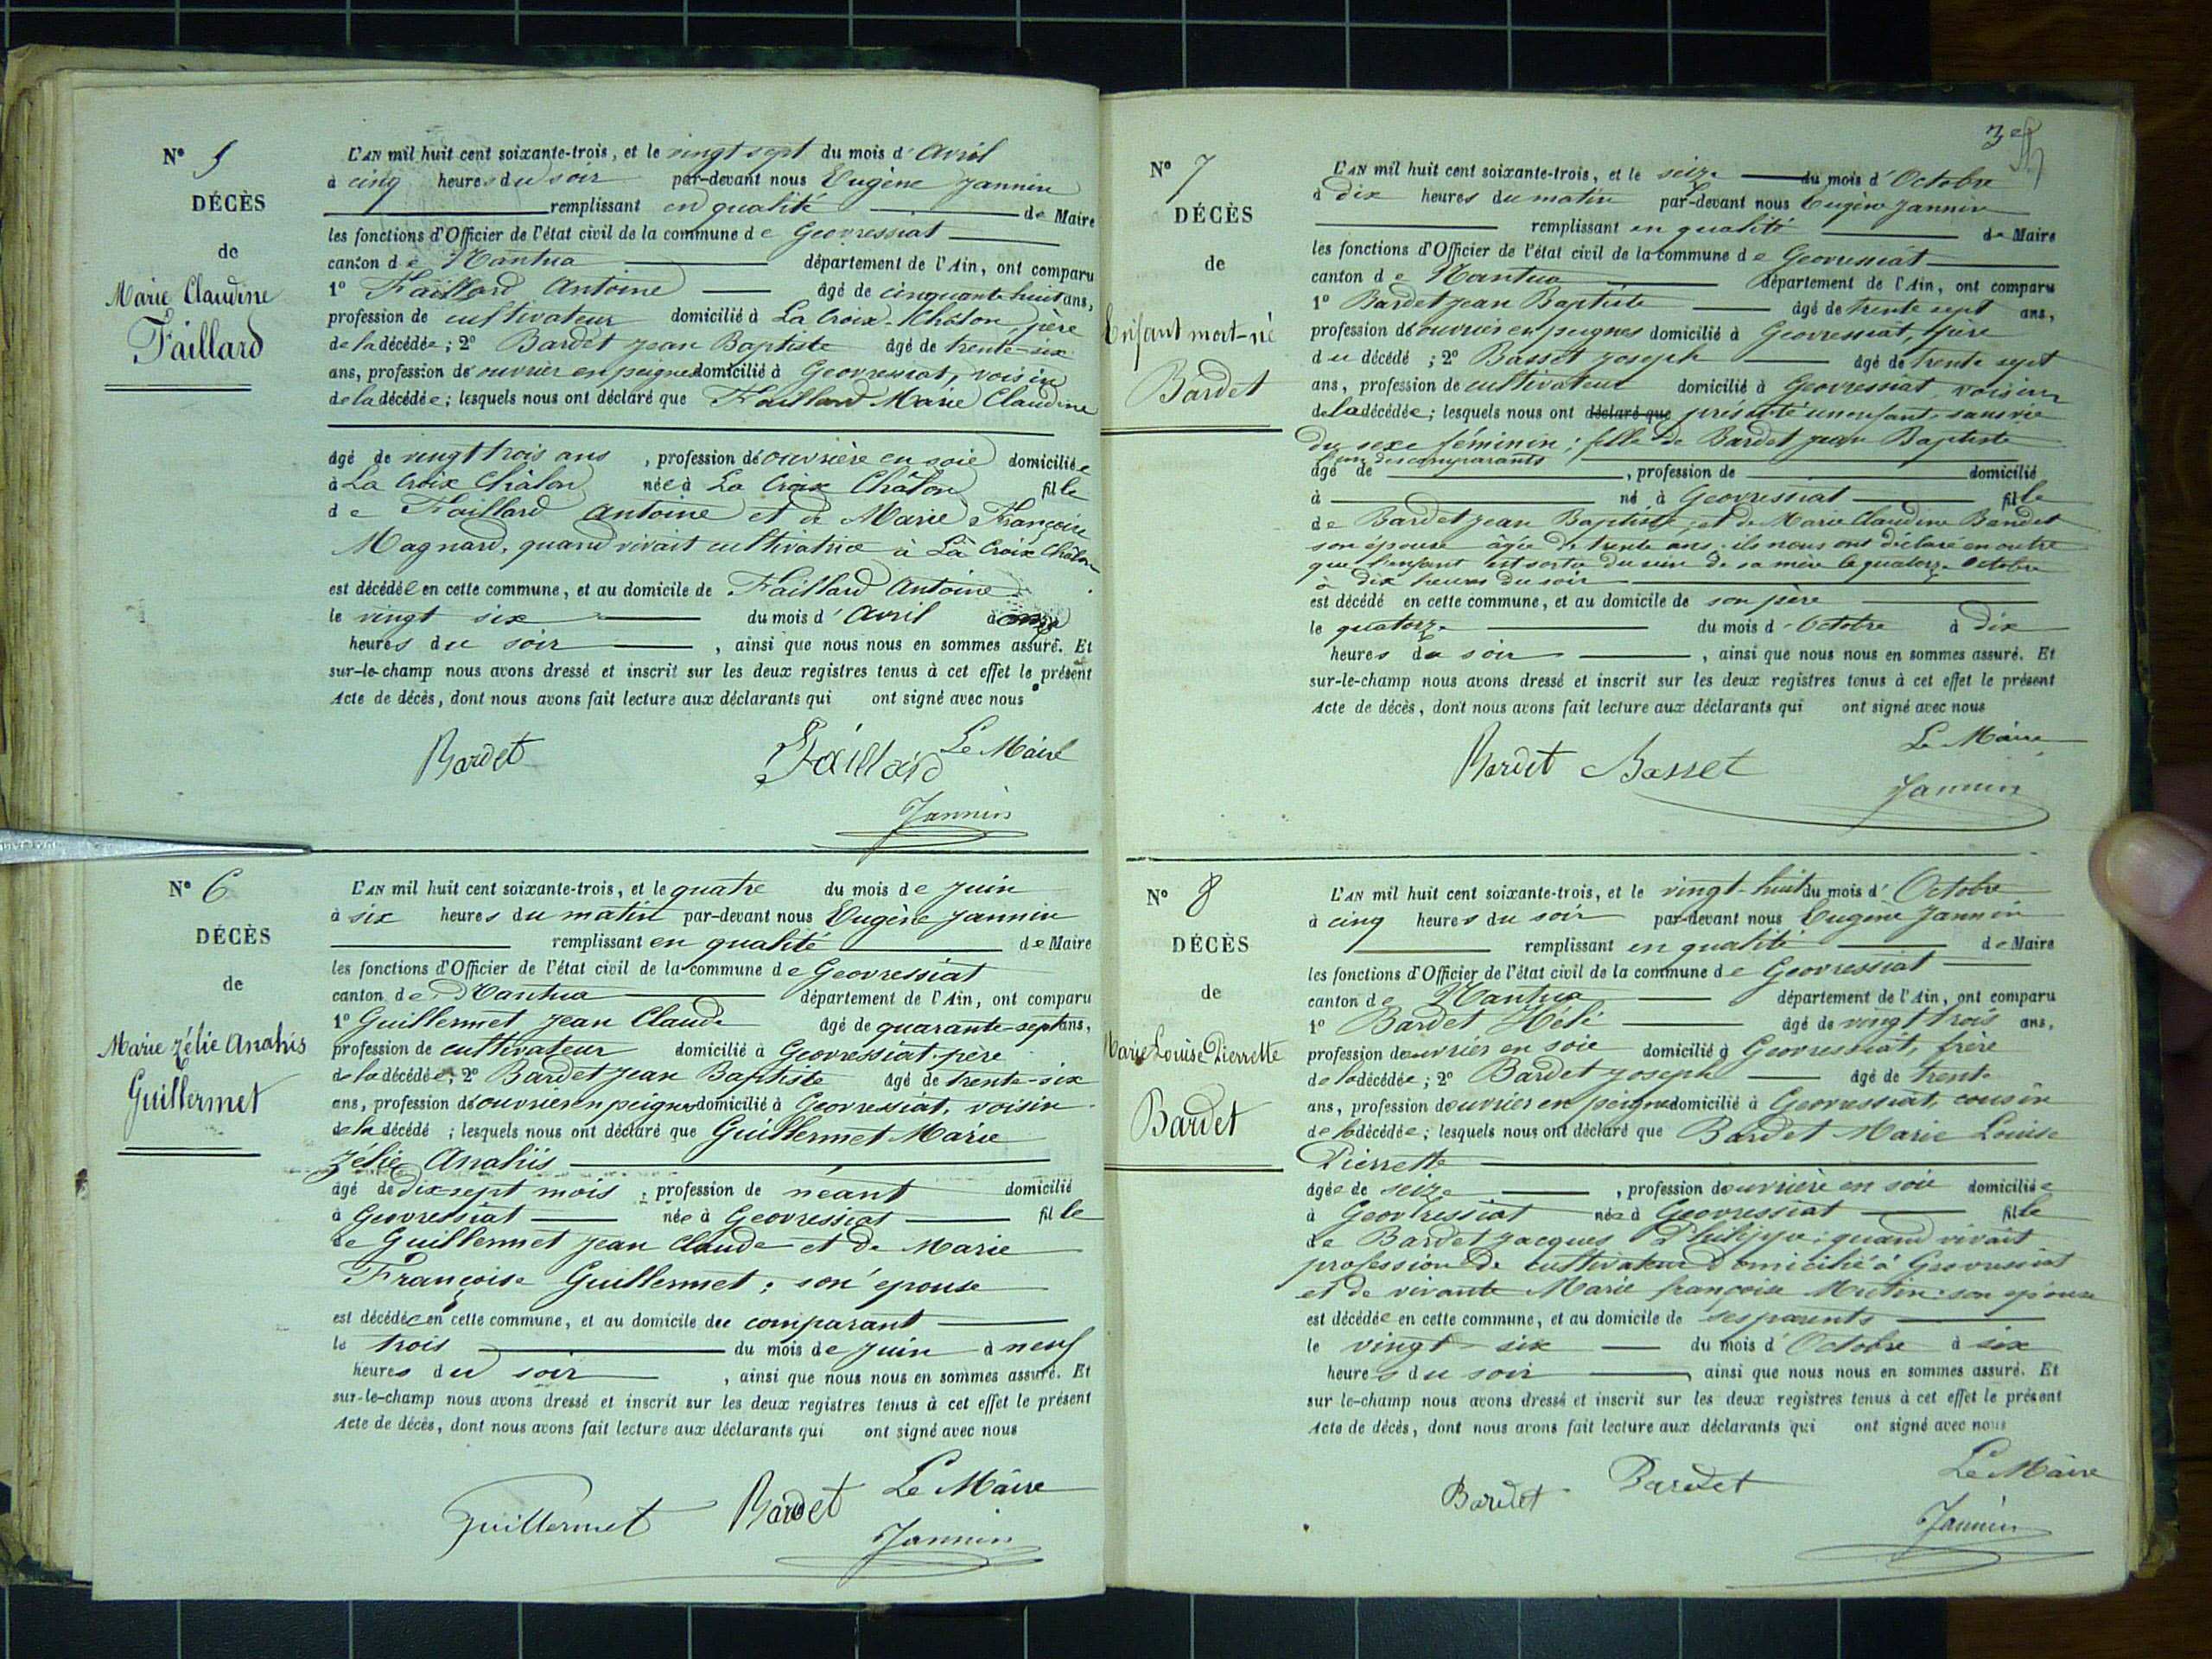 N° 5
DÉCÈS
de
Marie Claudine
Faillard
L'AN mil huit cent soixante-trois, et le vingt sept du mois d'Avril
à cinq heures du soir par-devant nous Eugène Jannin
remplissant en qualité de Maire
les fonctions d'Officier de l'état civil de la commune de Geovressiat
canton de Nantua département de l'Ain, ont comparu
1° Faillard Antoine âgé de cinquante huit ans,
profession de cultivateur domicilié à La Croix-Châlon, père
de la décédée; 2° Bardet Jean Baptiste âgé de trente-six
ans, profession de ouvrier en peignes domicilié à Geovressiat, voisin
de la décédée; lesquels nous ont déclaré que Faillard Marie Claudine
âgé de vingt trois ans, profession de ouvrière en soie domiciliée
à La Croix Châlon née à La Croix Châlon fille
de Faillard Antoine et de Marie Françoise
Magnard, quand vivait cultivatrice à La Croix Châlon
est décédée en cette commune, et au domicile de Faillard Antoine
le vingt six du mois d'Avril à onze
heures du soir, ainsi que nous nous en sommes assuré. Et
sur-le-champ nous avons dressé et inscrit sur les deux registres tenus à cet effet le présent
Acte de décès, dont nous avons fait lecture aux déclarants qui ont signé avec nous
Bardet Faillard Le Maire
Jannin
N° 6
DÉCÈS
de
Marie Zélie Anahis
Guillermet
L'AN mil huit cent soixante-trois, et le quatre du mois de Juin
à six heures du matin par-devant nous Eugène Jannin
remplissant en qualité de Maire
les fonctions d'Officier de l'état civil de la commune de Geovressiat
canton de Nantua département de l'Ain, ont comparu
1° Guillermet Jean Claude âgé de quarante-sept ans,
profession de cultivateur domicilié à Geovressiat père
de la décédée; 2° Bardet Jean Baptiste âgé de trente-six
ans, profession de ouvrier en peignes domicilié à Geovressiat, voisin
de la décédé; lesquels nous ont déclaré que Guillermet Marie
Zélie Anahis
âgé de dix sept mois, profession de néant domicilié
à Geovressiat née à Geovressiat fille
de Guillermet Jean Claude et de Marie
Françoise Guillermet; son épouse
est décédée en cette commune, et au domicile du comparant
le trois du mois de Juin à neuf
heures du soir, ainsi que nous nous en sommes assuré. Et
sur-le-champ nous avons dressé et inscrit sur les deux registres tenus à cet effet le présent
Acte de décès, dont nous avons fait lecture aux déclarants qui ont signé avec nous
Guillermet Bardet Le Maire
Jannin
3e
N° 7
DÉCÈS
de
Enfant mort-né
Bardet
L'AN mil huit cent soixante-trois, et le seize du mois d'Octobre
à dix heures du matin par-devant nous Eugène Jannin
remplissant en qualité de Maire
les fonctions d'Officier de l'état civil de la commune de Geovressiat
canton de Nantua département de l'Ain, ont comparu
1° Bardet Jean Baptiste âgé de trente sept ans,
profession de ouvrier en peignes domicilié à Geovressiat, père
du décédé; 2° Basset Joseph âgé de trente sept
ans, profession de cultivateur domicilié à Geovressiat, voisin
de la décédée; lesquels nous ont déclaré que présenté un enfant sans vie
du sexe féminin; fille de Bardet Jean Baptiste
l'un des comparants
âgé de, profession de domicilié
à né à Geovressiat fille
de Bardet Jean Baptiste, et de Marie Claudine Bardet
son épouse âgée de trente ans; ils nous ont déclaré en outre
que l'enfant est sorti du sein de sa mère le quatorze Octobre
à dix heures du soir
est décédé en cette commune, et au domicile de son père
le quatorze du mois d'Octobre à dix
heures du soir, ainsi que nous nous en sommes assuré. Et
sur-le-champ nous avons dressé et inscrit sur les deux registres tenus à cet effet le présent
Acte de décès, dont nous avons fait lecture aux déclarants qui ont signé avec nous
Bardet Basset Le Maire
Jannin
N° 8
DÉCÈS
de
Marie Louise Pierrette
Bardet
L'AN mil huit cent soixante-trois, et le vingt-huit du mois d'Octobre
à cinq heures du soir par-devant nous Eugène Jannin
remplissant en qualité de Maire
les fonctions d'Officier de l'état civil de la commune de Geovressiat
canton de Nantua département de l'Ain, ont comparu
1° Bardet Héli âgé de vingt trois ans,
profession de ouvrier en soie domicilié à Geovressiat, frère
de la décédée; 2° Bardet Joseph âgé de trente
ans, profession de ouvrier en peignes domicilié à Geovressiat, cousin
de la décédée; lesquels nous ont déclaré que Bardet Marie Louise
Pierrette
âgée de seize, profession de ouvrière en soie domiciliée
à Geovressiat née à Geovressiat fille
de Bardet Jacques Philippe; quand vivait
profession de cultivateur domicilié à Geovressiat
et de vivante Marie françoise Mutin son épouse
est décédée en cette commune, et au domicile de ses parents
le vingt-six du mois d'Octobre à six
heures du soir, ainsi que nous nous en sommes assuré. Et
sur le-champ nous avons dressé et inscrit sur les deux registres tenus à cet effet le présent
Acte de décès, dont nous avons fait lecture aux déclarants qui ont signé avec nous
Bardet Bardet Le Maire
Jannin